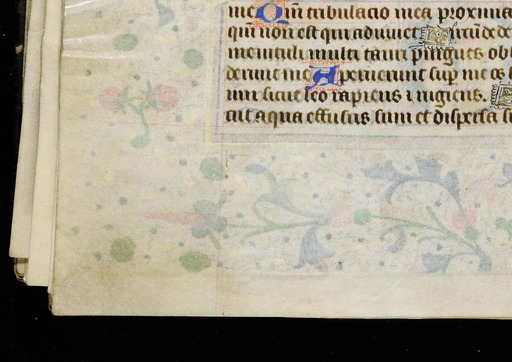 me Qm̄ tribulacio mea proxima
qm̄ non est qui adiuuet
me uituli multi tauri pingues ob
derunt me Aperuerunt sup̄ me os
um sicut leo rapiens ⁊ rugiens.
cut aqua effusus sum et dispersa su